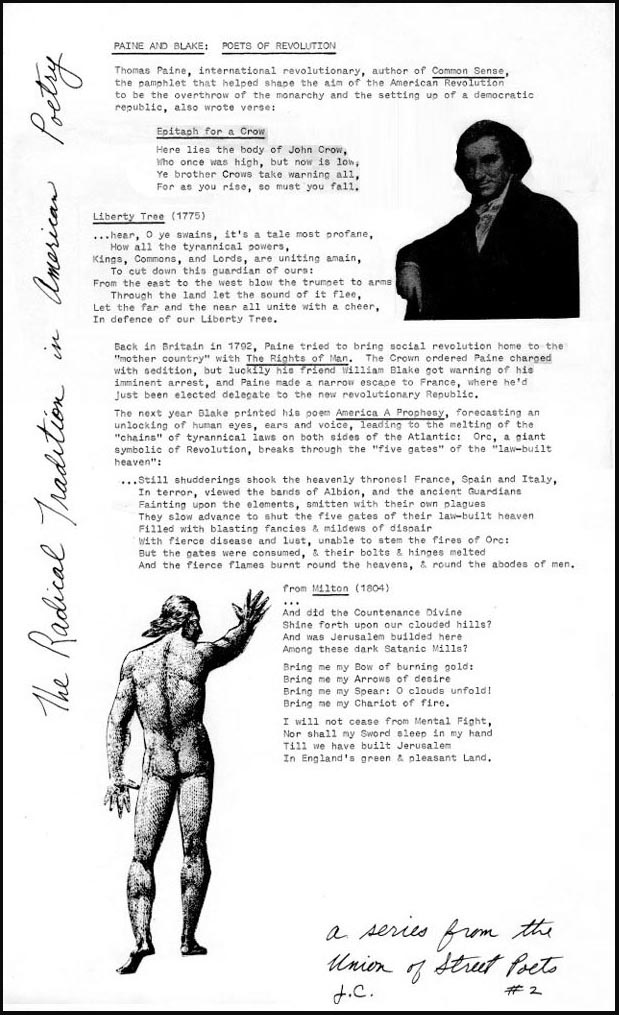 The Radical Tradition in American Poetry
PAINE AND BLAKE: POETS OF REVOLUTION
Thomas Paine, international revolutionary, author of Common Sense,
the pamphlet that helped shape the aim of the American Revolution
to be the overthrow of the monarchy and the setting up of a democratic
republic, also wrote verse:
Epitaph for a Crow
Here lies the body of John Crow,
Who once was high, but now is low;
Ye brother Crows take warning all,
For as you rise, so must you fall.
Liberty Tree (1775)
...hear, O ye swains, it's a tale most profane,
How all the tyrannical powers,
Kings, Commons, and Lords, are uniting amain,
To cut down this guardian of ours:
From the east to the west blow the trumpet to arms
Through the land let the sound of it flee,
Let the far and the near all unite with a cheer,
In defence of our Liberty Tree.
Back in Britain in 1792, Paine tried to bring social revolution home to the
"mother country" with The Rights of Man. The Crown ordered Paine charged
with sedition, but luckily his friend William Blake got warning of his
imminent arrest, and Paine made a narrow escape to France, where he'd
just been elected delegate to the new revolutionary Republic.
The next year Blake printed his poem America A Prophesy, forecasting an
unlocking of human eyes, ears and voice, leading to the melting of the
"chains" of tyrannical laws on both sides of the Atlantic: Orc, a giant
symbolic of Revolution, breaks through the "five gates" of the "law-built
heaven":
...Still shudderings shook the heavenly thrones! France, Spain and Italy,
In terror, viewed the bands of Albion, and the ancient Guardians
Fainting upon the elements, smitten with their own plagues
They slow advance to shut the five gates of their law-built heaven
Filled with blasting fancies & mildews of dispair
With fierce disease and lust, unable to stem the fires of Orc:
But the gates were consumed, & their bolts & hinges melted
And the fierce flames burnt round the heavens, & round the abodes of men.
from Milton (1804)
...
And did the Countenance Divine
Shine forth upon our clouded hills?
And was Jerusalem builded here
Among these dark Satanic Mills?
Bring me my Bow of burning gold:
Bring me my Arrows of desire
Bring me my Spear: O clouds unfold!
Bring me my Chariot of fire.
I will not cease from Mental Fight,
Nor shall my Sword sleep in my hand
Till we have built Jerusalem
In England's green & pleasant Land.
a series from the
Union of Street Poets
J.C. #2